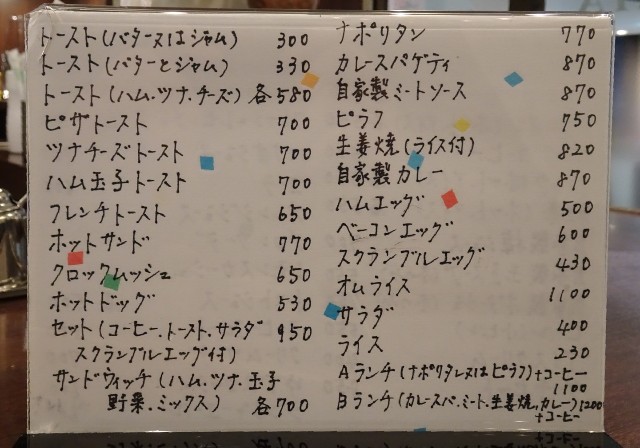 トースト(バター又はジャム) 300
トースト(バターとジャム) 330
トースト(ハム.ツナ.チーズ) 各580
ピザトースト 700
ツナチーズトースト 700
ハム玉子トースト 700
フレンチトースト 650
ホットサンド 770
クロックムッシュ 650
ホットドッグ 530
セット(コーヒー.トースト.サラダ 950
スクランブルエッグ付)
サンドウィッチ(ハム.ツナ.玉子
野菜.ミックス) 各700
ナポリタン 770
カレースパゲティ 870
自家製ミートソース 870
ピラフ 750
生姜焼(ライス付) 820
自家製カレー 870
ハムエッグ 500
ベーコンエッグ 600
スクランブルエッグ 430
オムライス 1100
サラダ 400
ライス 230
Aランチ(ナポリタン又はピラフ)+コーヒー
1100
Bランチ(カレースパ.ミート.生姜焼.カレー)1200
+コーヒー